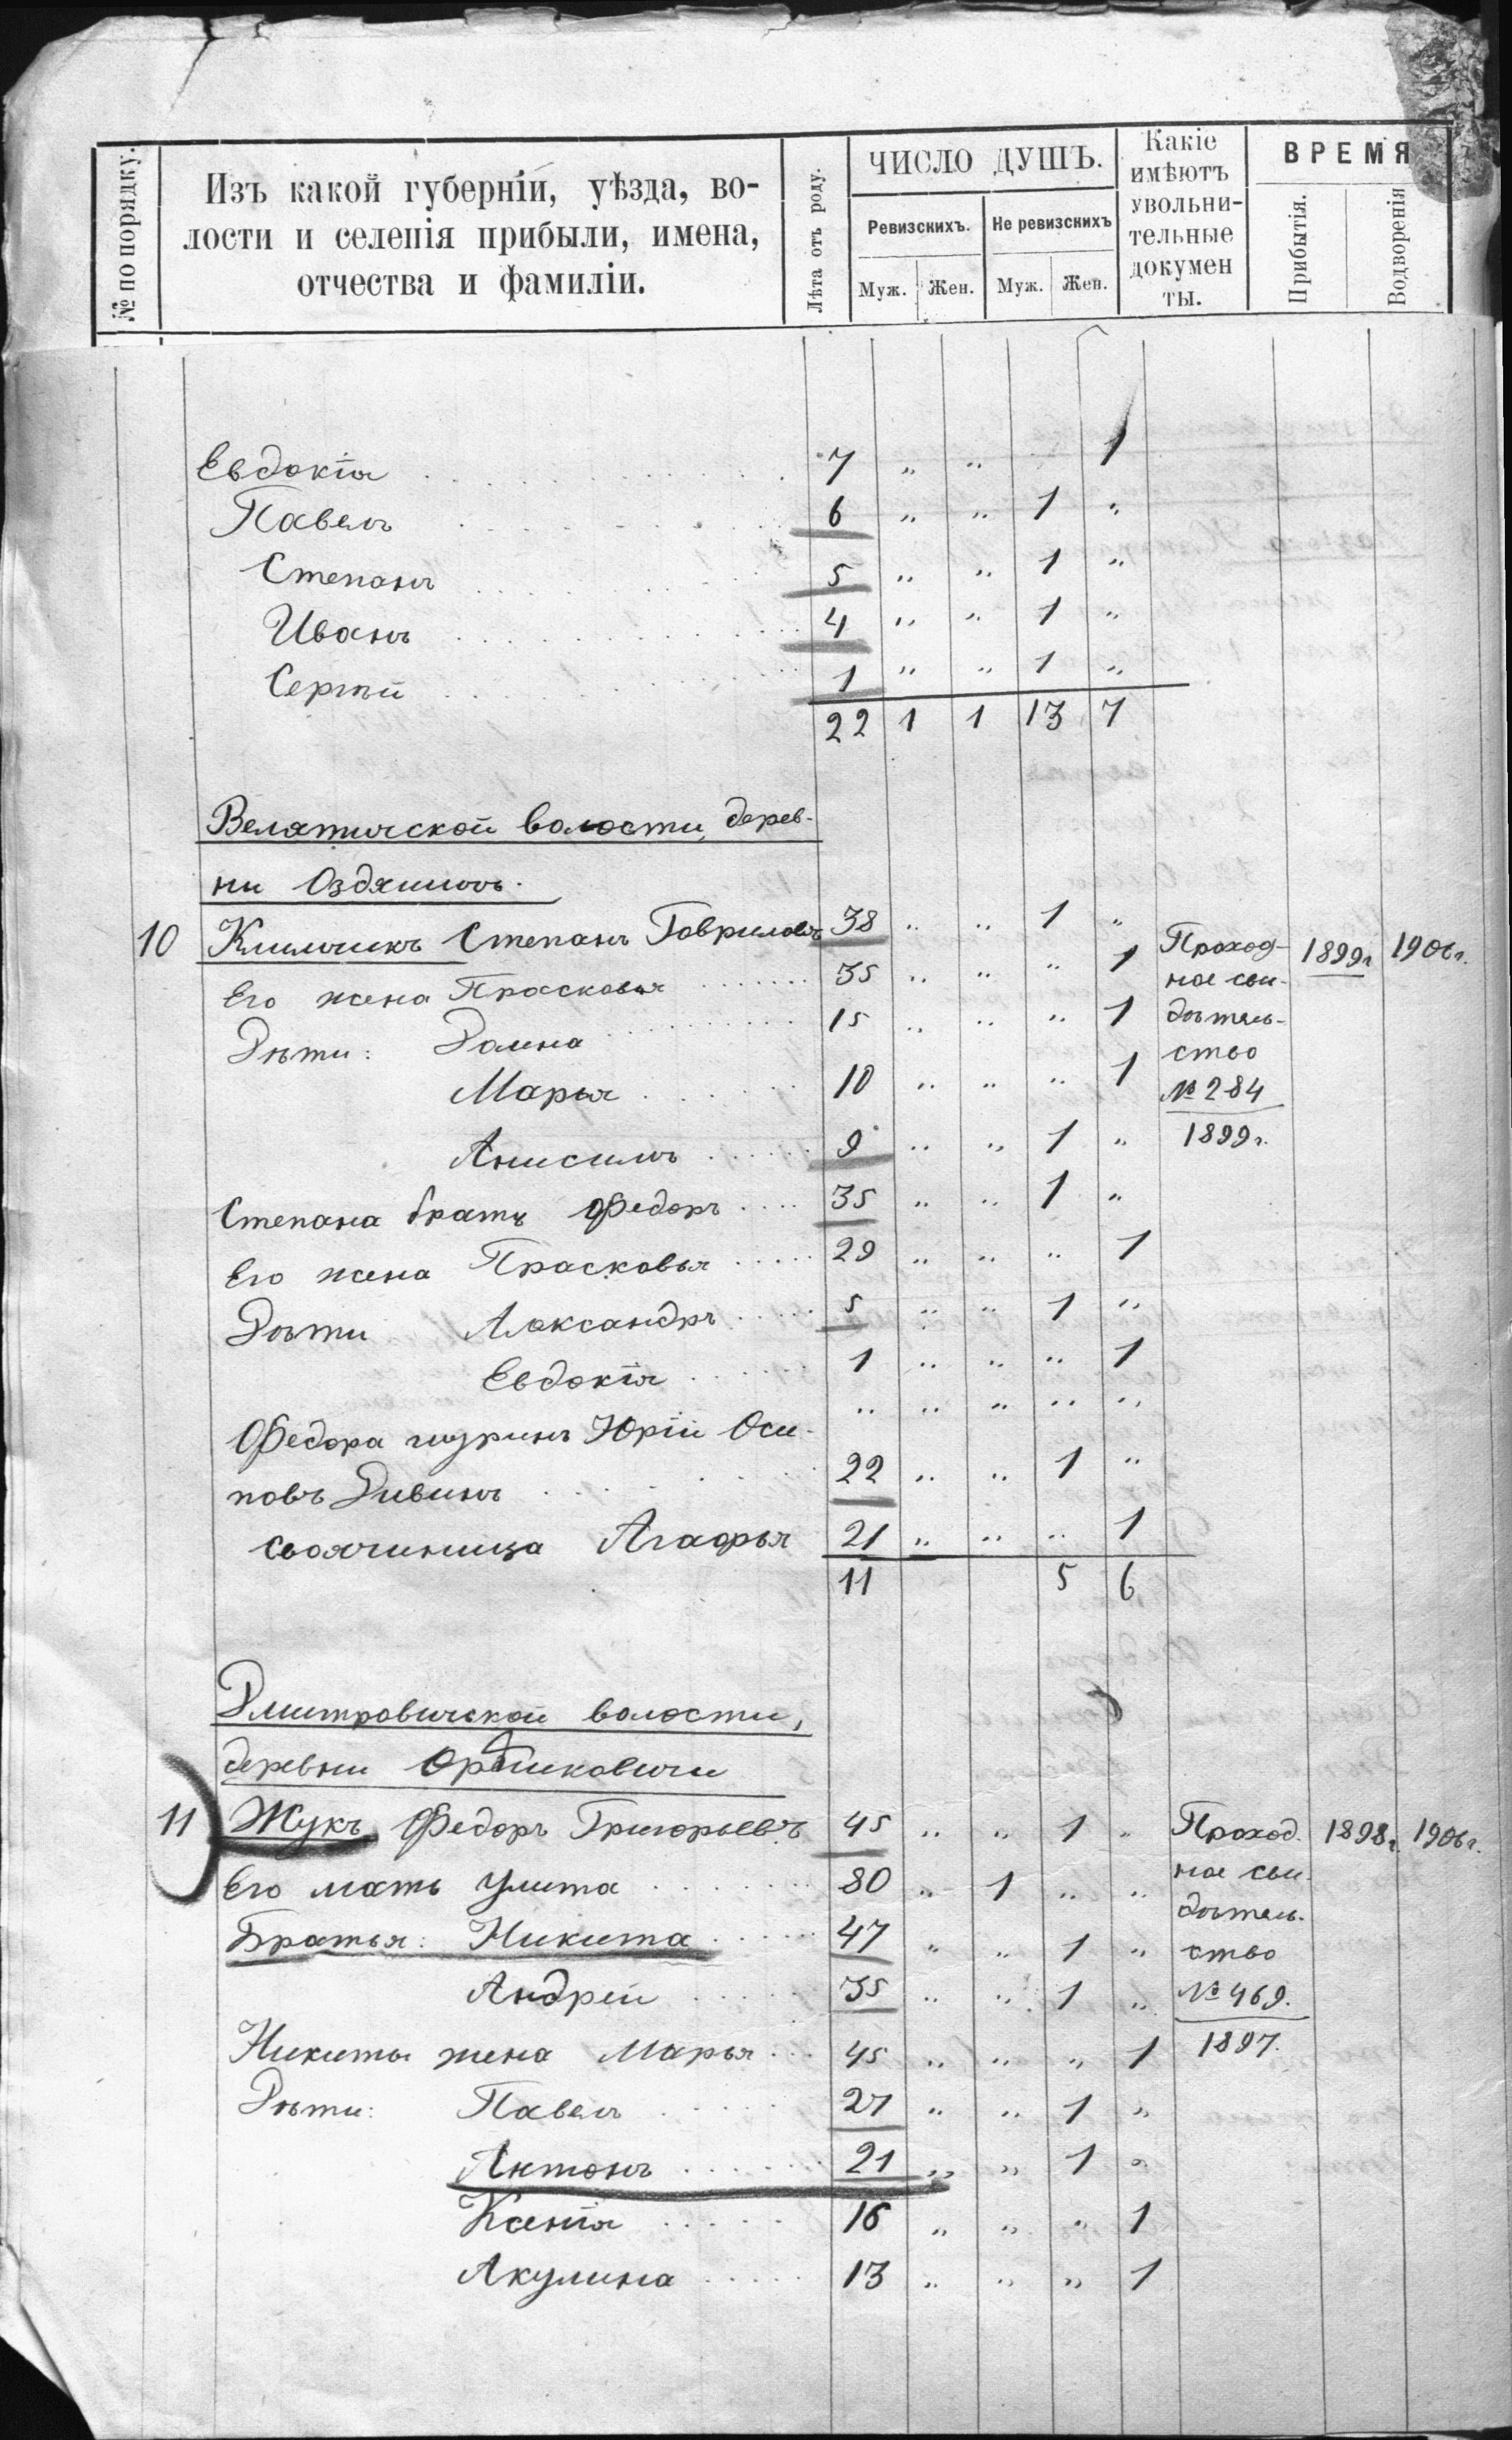 № по порядку.
Изъ какой губерніи, уѣзда, во-
лости и селенія прибыли, имена,
отчества и фамиліи.
Лѣта отъ роду.
ЧИСЛО ДУШЪ.
Ревизскихъ.
Не ревизскихъ
Муж. Жен. Муж. Жен.
Какіе
имѣютъ
увольни-
тельные
докумен
ты.
ВРЕМЯ
Прибытія.
Водворенія
Евдокія 7 " " 1
Павелъ 6 " " 1 "
Степанъ 5 " " 1 "
Иванъ 4 " " 1 "
Сергѣй 1 " " 1 "
22 1 1 13 7
Велятичской волости, дерев-
ни
10 Климчикъ Степанъ Гавриловъ 38 " " 1 " Проход- 1899г 1906г.
Его жена Прасковья 35 " " " 1 ное сви-
Дѣти: 15 " " " 1 дѣтель-
ство
Марья 10 " " " 1 № 284
Анисимъ 9 " " 1 " 1899г.
Степана братъ Федоръ 35 " " 1 "
Его жена Прасковья 29 " " " 1
Дѣти Александръ 5 " " 1 "
Евдокія 1 " " " 1
Федора шуринъ Юрій Оси- " " " " "
повъ Дивинъ 22 " " 1 "
своячиница Агафья 21 " " " 1
11 5 6
Дмитровичской волости,
деревни
11 Жукъ Федоръ Григорьевъ 45 " " 1 " Проход. 1898г. 1906г.
Его мать Улита 80 " 1 " " ное сви-
дѣтель-
Братья: Никита 47 " " 1 " ство
Андрей 35 " " 1 " № 469.
Никиты жена Марья 45 " " " 1 1897.
Дѣти: Павелъ 27 " " 1 "
Антонъ 21 " " 1 "
Ксенія 16 " " " 1
Акулина 13 " " " 1